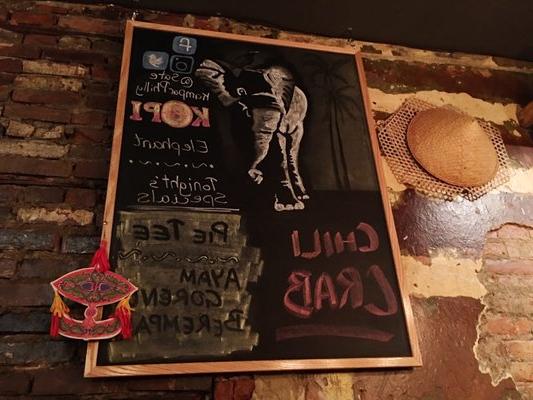 @Sate
KamparPhilly
KOPI
Elephant
Tonight's
Specials
PIE TEE
AYAM
GORENG
BEREMPA
CHILI
CRAB